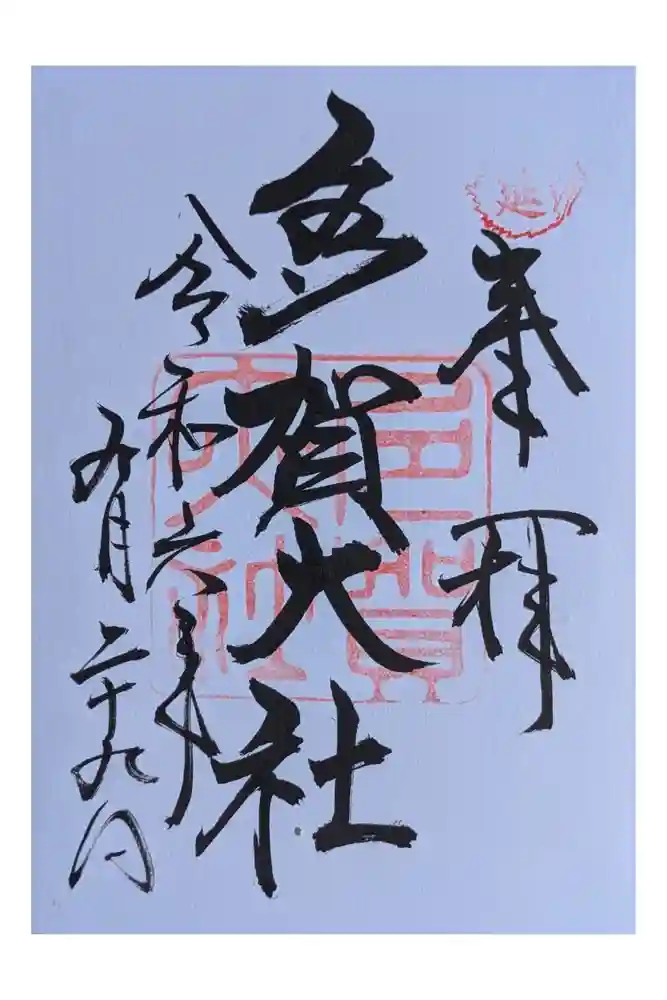 奉拝
多賀大社
令和六年
九月二十九日
多賀
大社